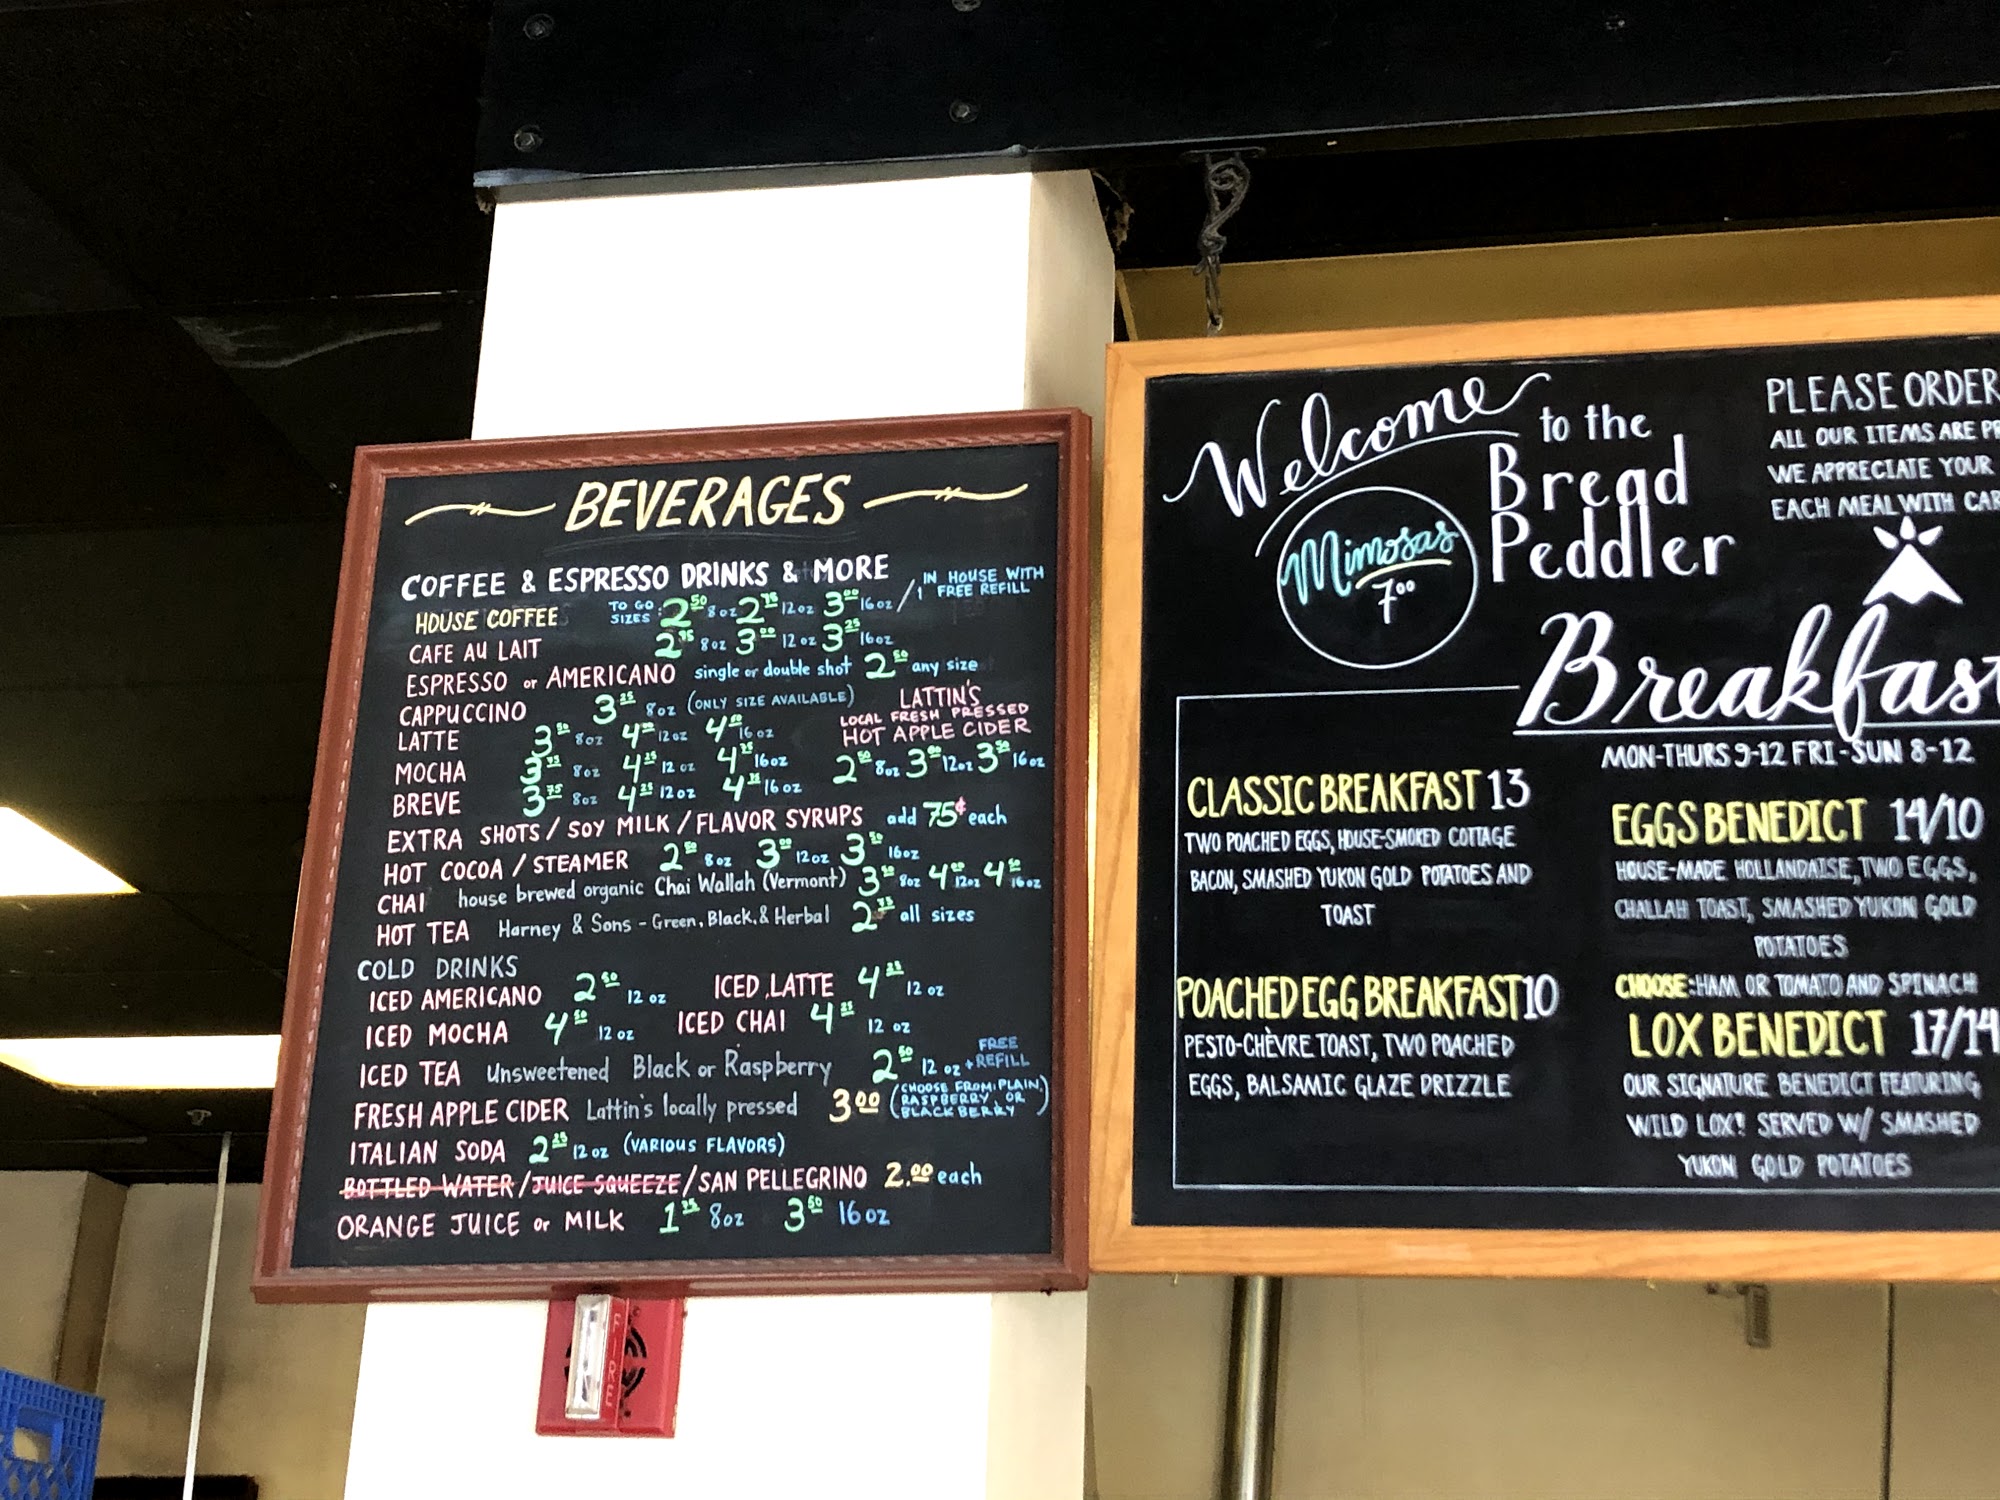 BEVERAGES
COFFEE & ESPRESSO DRINKS & MORE
HOUSE COFFEE TO GO SIZES: 2.50 8oz 2.75 12oz 3.00 16oz / IN HOUSE WITH 1 FREE REFILL
CAFE AU LAIT 2.75 8oz 3.00 12oz 3.25 16oz
ESPRESSO or AMERICANO single or double shot 2.50 any size
CAPPUCCINO 3.25 8oz (ONLY SIZE AVAILABLE)
LATTE 3.50 8oz 4.00 12oz 4.50 16oz
MOCHA 3.75 8oz 4.25 12oz 4.75 16oz
BREVE 3.75 8oz 4.25 12oz 4.75 16oz
LATTIN'S
LOCAL FRESH PRESSED
HOT APPLE CIDER
2.50 8oz 3.00 12oz 3.50 16oz
EXTRA SHOTS / SOY MILK / FLAVOR SYRUPS add 75¢ each
HOT COCOA / STEAMER 2.50 8oz 3.00 12oz 3.50 16oz
CHAI house brewed organic Chai Wallah (Vermont) 3.50 8oz 4.00 12oz 4.50 16oz
HOT TEA Harney & Sons - Green, Black, & Herbal 2.75 all sizes
COLD DRINKS
ICED AMERICANO 2.50 12 oz ICED LATTE 4.25 12 oz
ICED MOCHA 4.50 12 oz ICED CHAI 4.25 12 oz
ICED TEA Unsweetened Black or Raspberry 2.50 12 oz + FREE REFILL
FRESH APPLE CIDER Lattin's locally pressed 3.00 (CHOOSE FROM: PLAIN, RASPBERRY, OR BLACKBERRY)
ITALIAN SODA 2.25 12 oz (VARIOUS FLAVORS)
BOTTLED WATER / JUICE SQUEEZE / SAN PELLEGRINO 2.00 each
ORANGE JUICE or MILK 1.75 8oz 3.50 16 oz
FIRE
Welcome to the
Bread
Peddler
Mimosas
7.00
PLEASE ORDER
ALL OUR ITEMS ARE
WE APPRECIATE YOUR
EACH MEAL WITH
Breakfast
MON-THURS 9-12 FRI-SUN 8-12
CLASSIC BREAKFAST 13
TWO POACHED EGGS, HOUSE-SMOKED COTTAGE
BACON, SMASHED YUKON GOLD POTATOES AND
TOAST
POACHED EGG BREAKFAST 10
PESTO-CHÈVRE TOAST, TWO POACHED
EGGS, BALSAMIC GLAZE DRIZZLE
EGGS BENEDICT 14/10
HOUSE-MADE HOLLANDAISE, TWO EGGS,
CHALLAH TOAST, SMASHED YUKON GOLD
POTATOES
CHOOSE: HAM OR TOMATO AND SPINACH
LOX BENEDICT 17/14
OUR SIGNATURE BENEDICT FEATURING
WILD LOX! SERVED W/ SMASHED
YUKON GOLD POTATOES